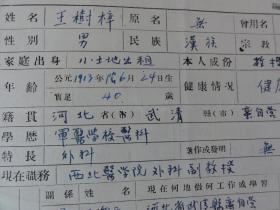 姓名 王樹梓 原名 無 曾用名
性別 男 民族 漢族 宗教
家庭出身 小土地出租 本人成份
年齡 公元1913年6月24日生 實足40歲 健康情况 健康
籍貫 河北省(市) 武清縣(市)
學歷 軍醫學校醫科
特長 外科 著作或發明 無
現在職務 西北醫學院外科副教授
關係 姓名 現在何地做何工作或學習